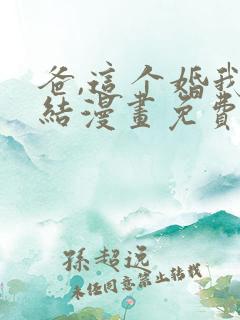 爸,這个婚我
結漫畫免費
孫超远
未经同意禁止转载